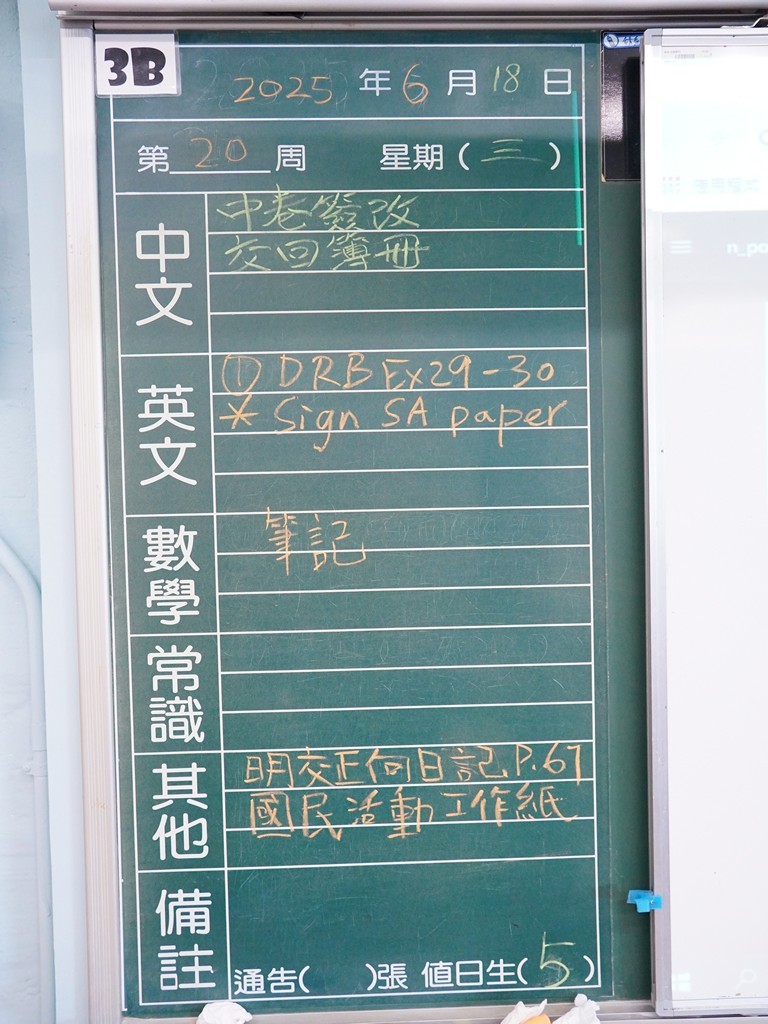 3B
2025 年 6 月 18 日
第 20 周 星期(三)
中文
中卷簽改
交回簿冊
英文
① DRB Ex29-30
* Sign SA paper
數學
筆記
常識
其他
明交正向日記P.67
國民活動工作紙
備註
通告( )張 值日生(5)
n_po